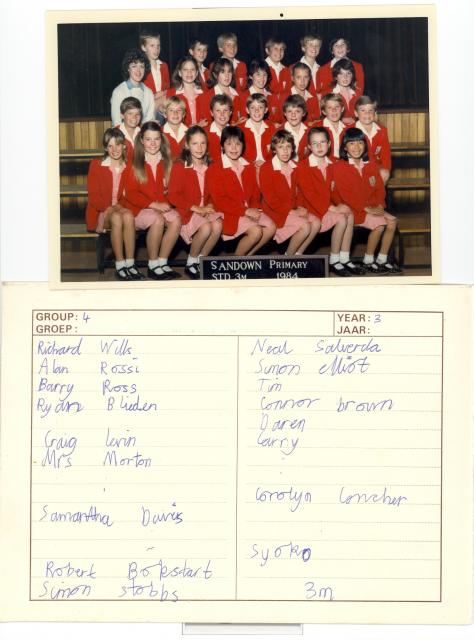 SANDOWN PRIMARY
STD 3M 1984
GROUP: 4
GROEP:
YEAR: 3
JAAR:
Richard Wills
Alan Rossi
Barry Ross
Ryan Blieden
Craig Levin
Mrs Morton
Samantha Davis
Robert Bokstart
Simon Stobbs
Neal Salverda
Simon elliot
Tim
Connor brown
Daren
Garry
Carolyn
Syoko
3m